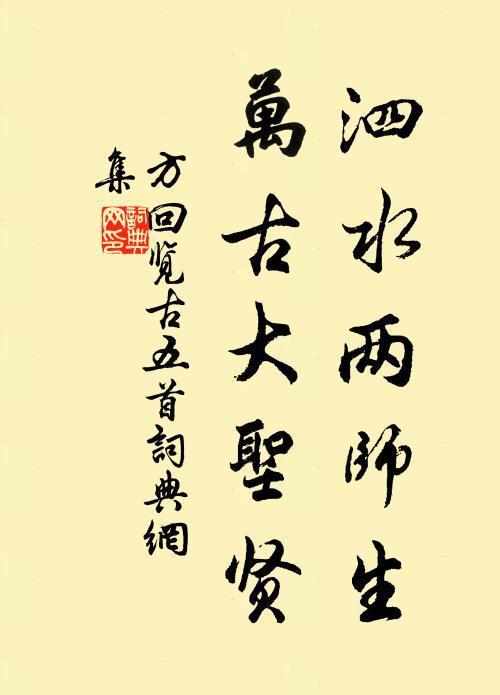 泗水两師生
萬古大聖贤
方回览古五首詞典網
集
詞典
网印